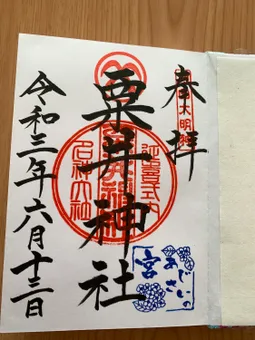 奉拝
粟井神社
延喜式内
名神大社
あじさいの宮
令和三年六月十三日